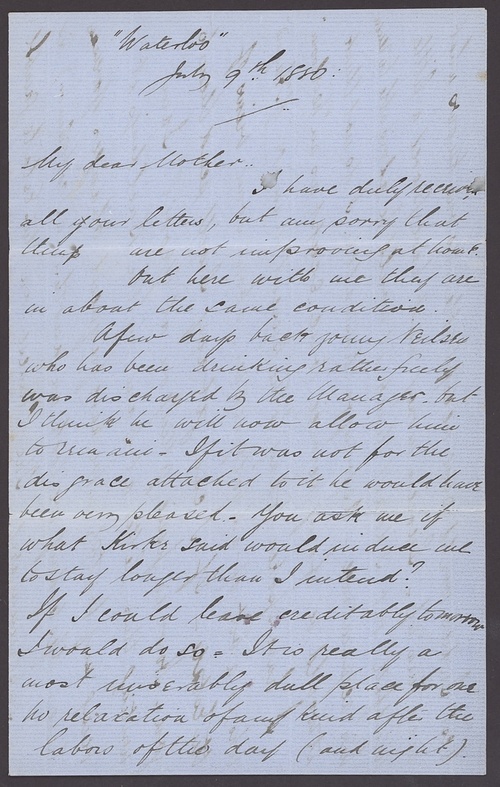 "Waterloo"
July 9th 1880.
My dear Mother..
I have duly received
all your letters, but am sorry that
things are not improving at home.
Out here with me they are
in about the same condition.
A few days back young Neilson
who has been drinking rather freely
was discharged by the Manager, but
I think he will now allow him
to remain - If it was not for the
disgrace attached to it he would have
been very pleased - You ask me if
what Kirke said would induce me
to stay longer than I intend?
If I could leave creditably tomorrow
I would do so = It is really a
most miserably dull place for one
no relaxation of any kind after the
labors of the day (and night).